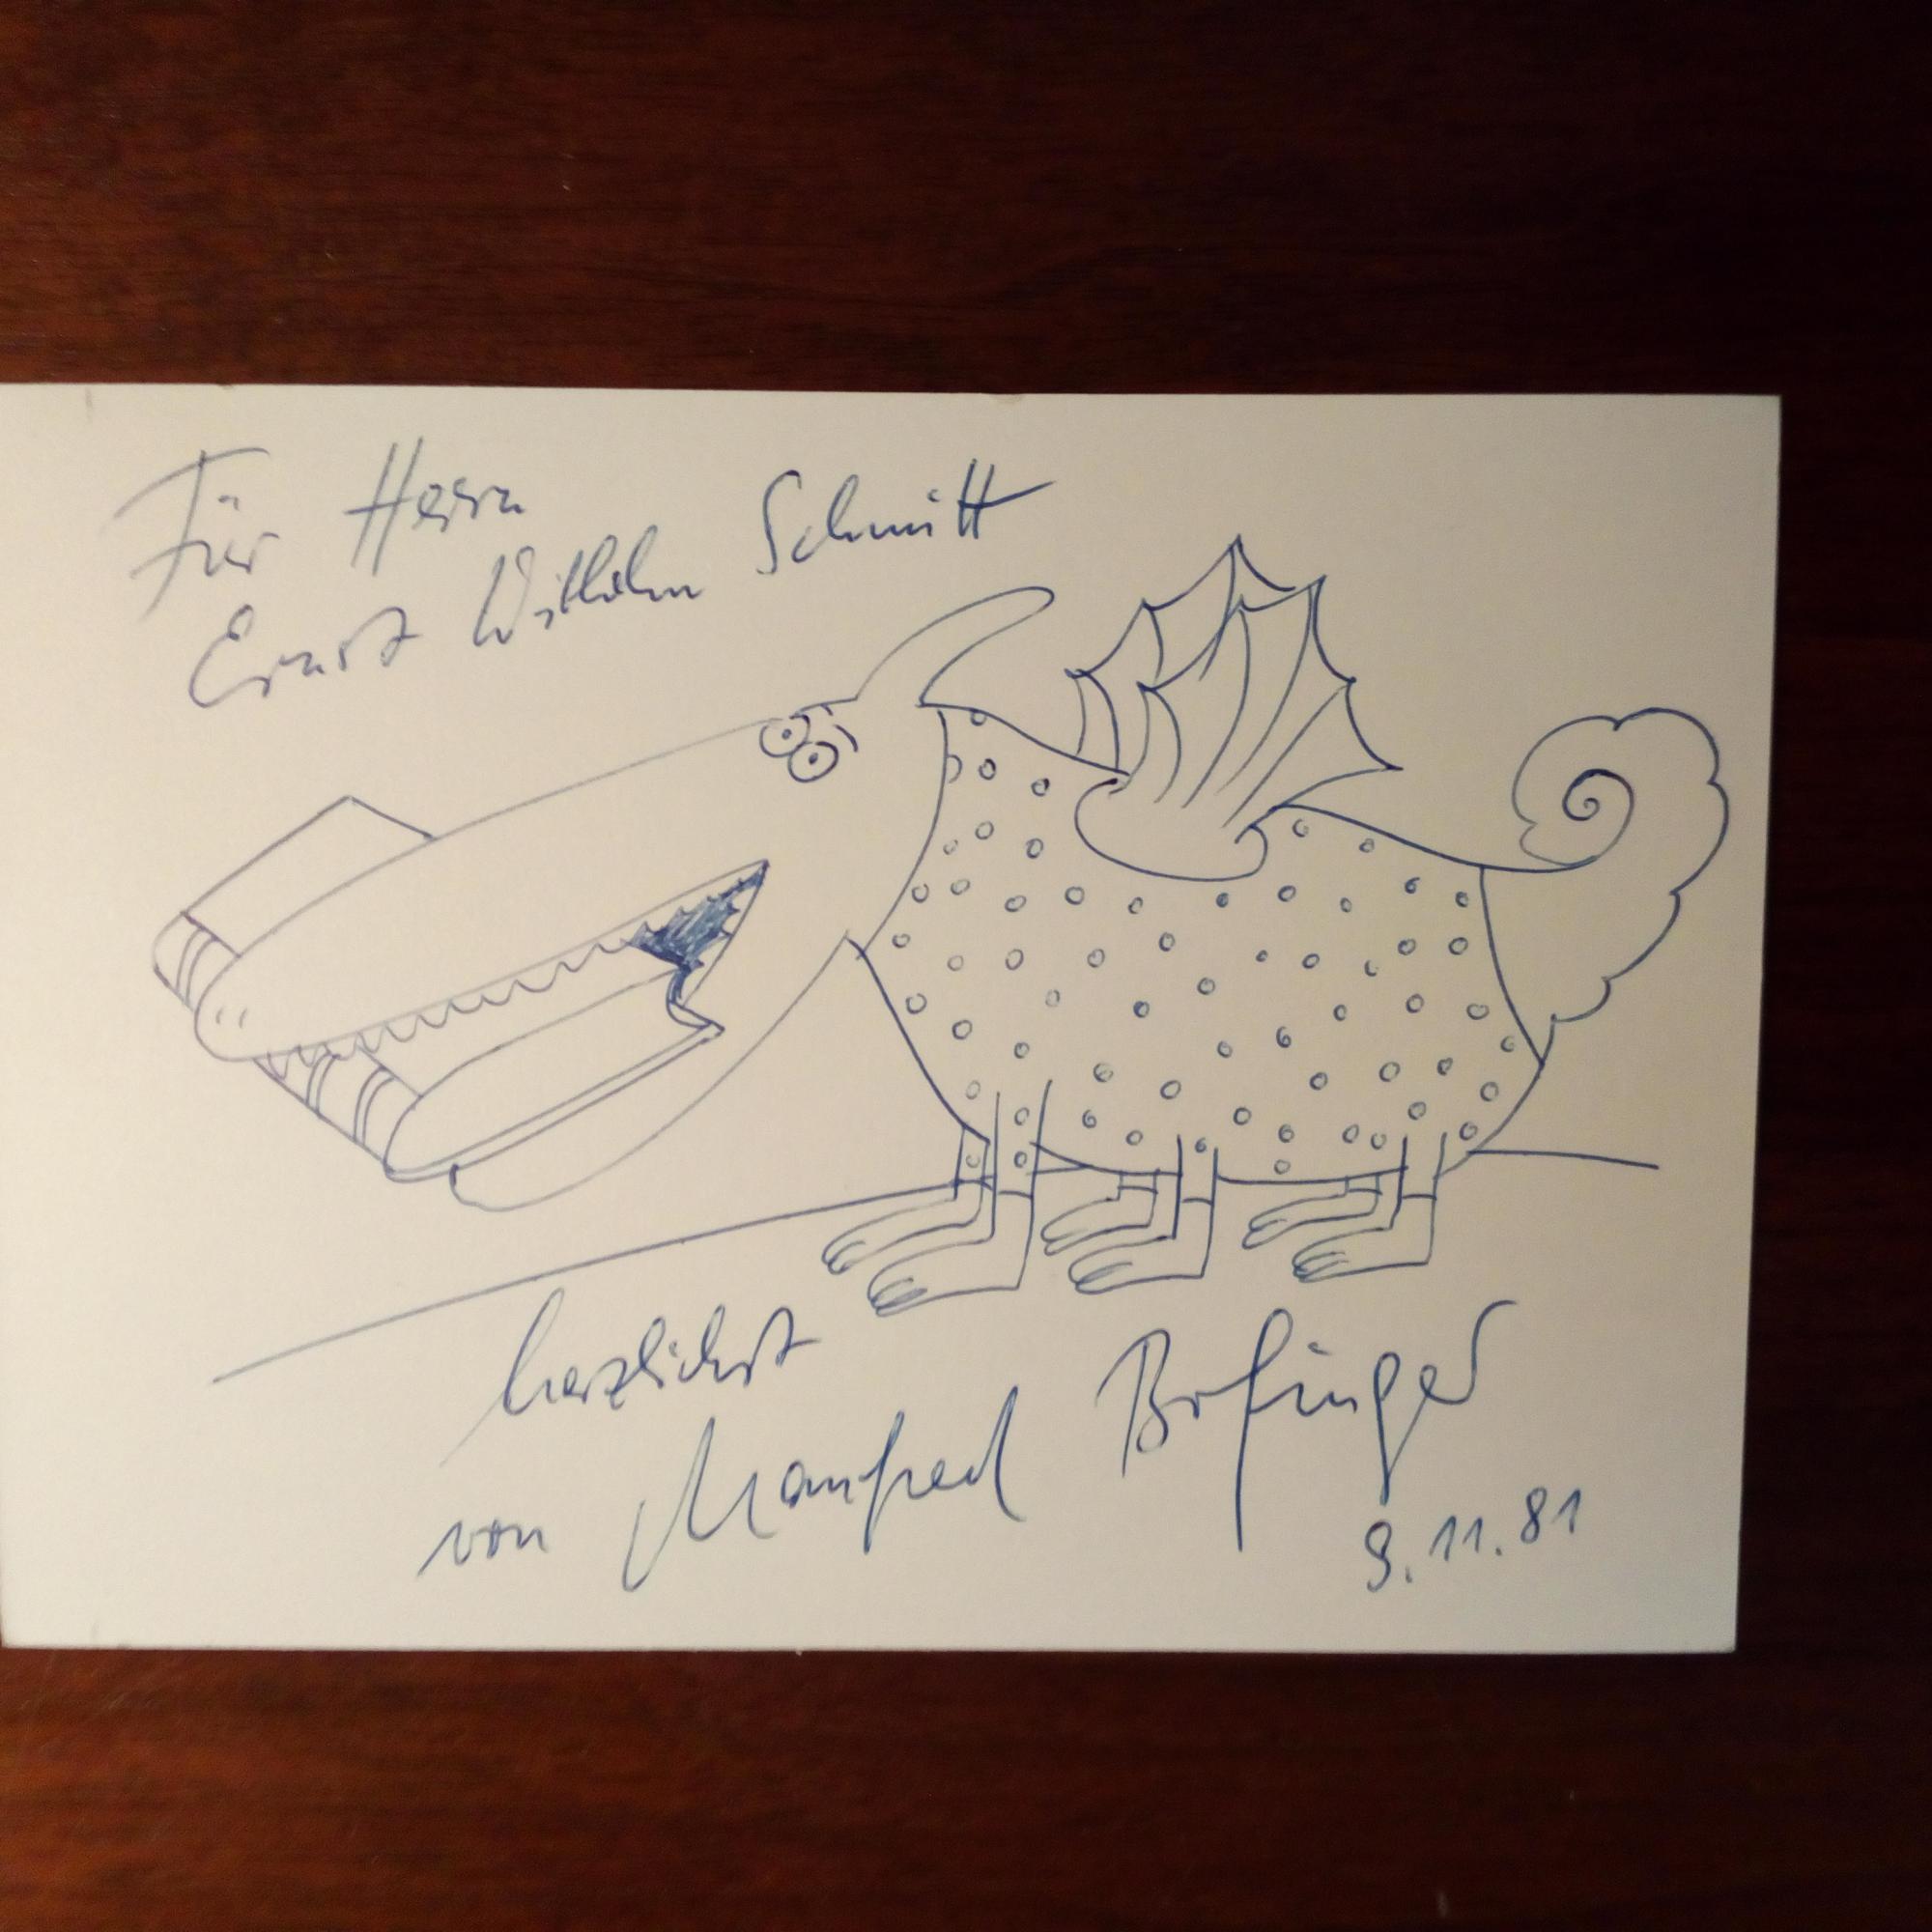 Für Herrn
Ernst Wilhelm Schmitt
herzlichst
von Manfred Bofinger
9.11.81